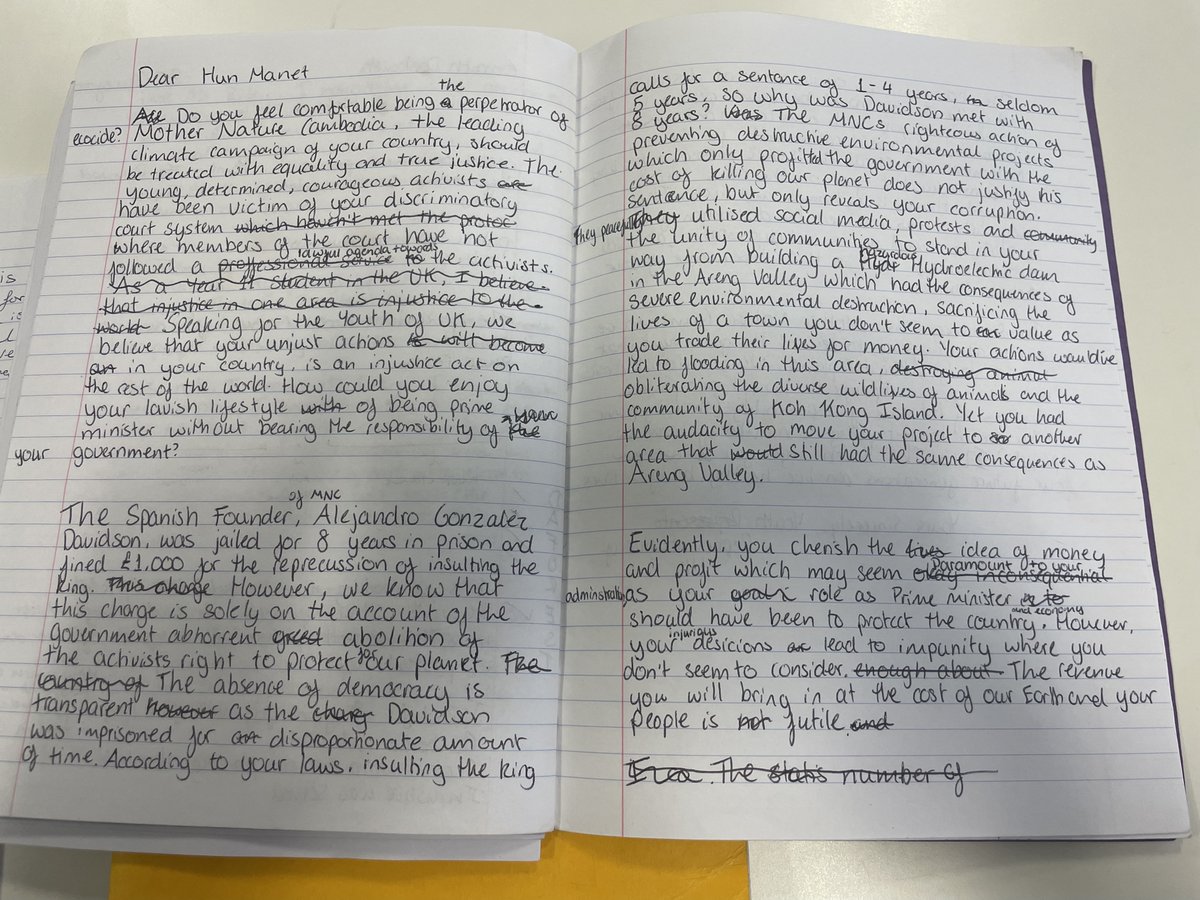 Dear Hun Manet
the
Do you feel comfortable being a perpetrator of
ecocide? Mother Nature Cambodia, the leading
climate campaign of your country, should
be treated with equality and true justice. The
young, determined, courageous activists are
have been victim of your discriminatory
court system which haven't met the protoc
where members of the court have not
lawful agenda towards
followed a proffessional service to the activists.
As a Year 11 student in the UK, I believe
that injustice in one area is injustice to the
world Speaking for the Youth of UK, we
believe that your unjust actions is will become
an in your country, is an injustice act on
the rest of the world. How could you enjoy
your lavish lifestyle with of being prime
minister without bearing the responsibility of the
your government?
of MNC
The Spanish Founder, Alejandro Gonzalez
Davidson, was jailed for 8 years in prison and
fined £1,000 for the reprecussion of insulting the
king. This charge However, we know that
this charge is solely on the account of the
government abhorrent greed abolition of
the activists right to protect for our planet. The
country of The absence of democracy is
transparent however as the charg Davidson
was imprisoned for an disproportionate amount
of time. According to your laws, insulting the king
calls for a sentence of 1-4 years, seldom
5 years, so why was Davidson met with
8 years? Was The MNCs righteous action of
preventing destructive environmental projects
which only profitted the government with the
cost of killing our planet does not justify his
sentence, but only reveals your corruption.
They peacefully They utilised social media, protests and community
the unity of communities to stand in your
way from building a hazardous Hydr Hydroelectric dam
in the Areng Valley which had the consequences of
severe environmental destruction, sacrificing the
lives of a town you don't seem to value as
you trade their lives for money. Your actions would've
led to flooding in this area, destroying animal
obliterating the diverse wildlives of animals and the
community of Koh Kong Island. Yet you had
the audacity to move your project to so another
area that would still had the same consequences as
Areng Valley.
Evidently, you cherish the idea of money
Paramount to your
and profit which may seem okay inconsequential
administration, as your goals role as Prime minister is to
and economy
should have been to protect the country. However,
injurious
your desicions lead to impunity where you
don't seem to consider. enough about The revenue
you will bring in at the cost of our Earth and your
people is not futile. and
The statis number of